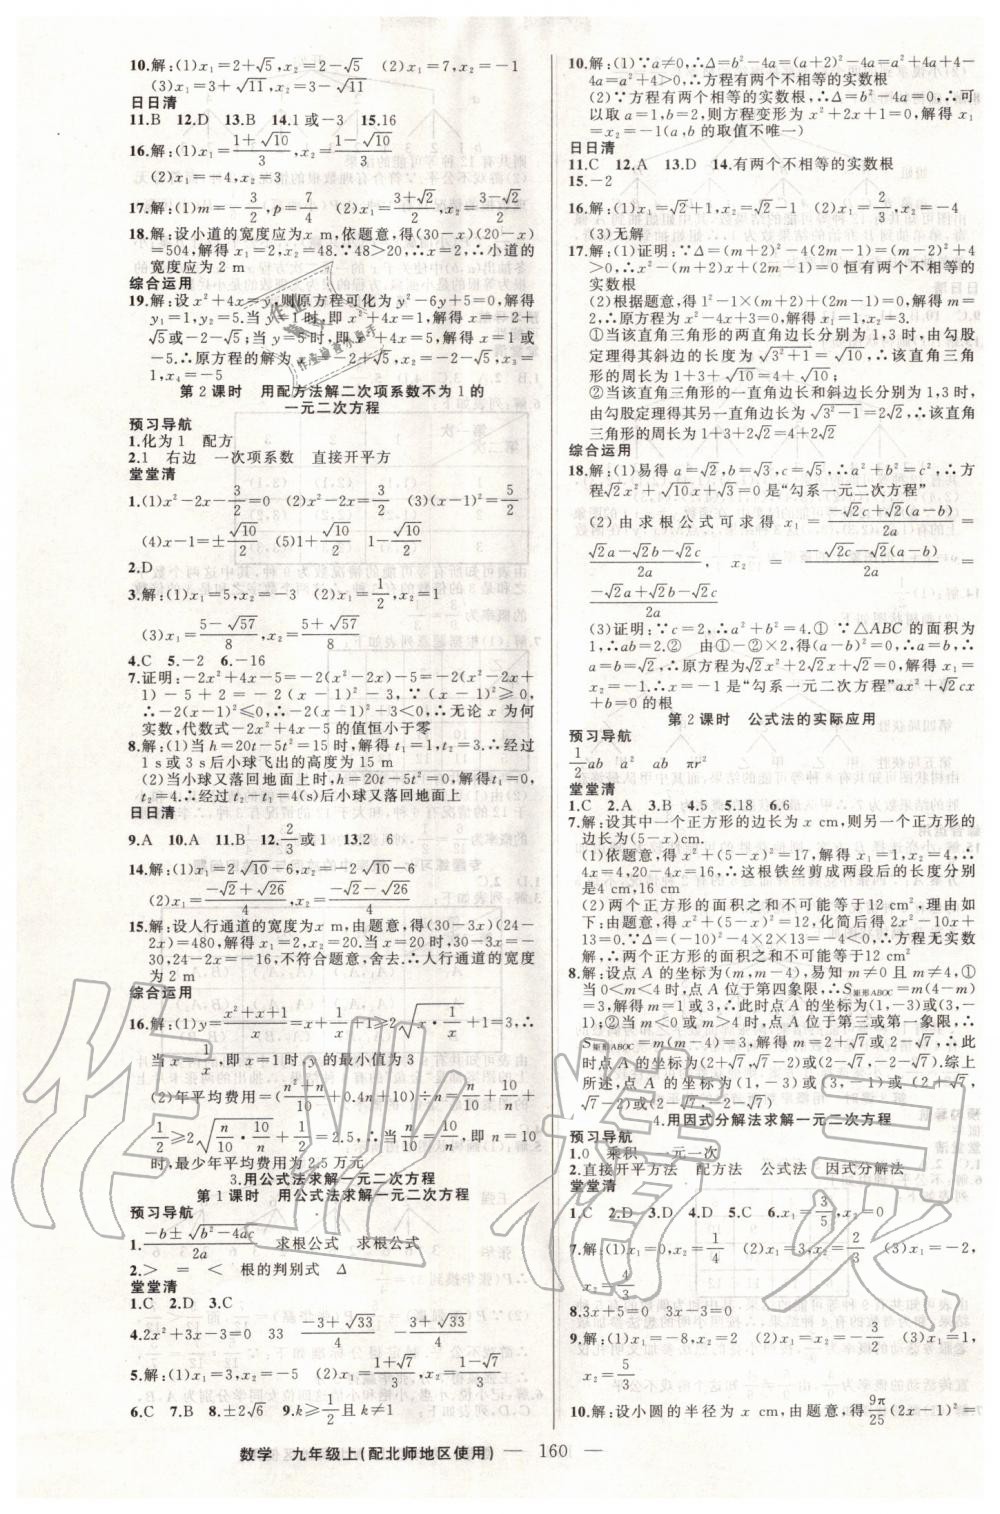 10.解:(1)x₁=2+√5,x₂=2-√5 (2)x₁=7,x₂=-1
(3)x₁=3+√11,x₂=3-√11
日日清
11.B 12.D 13.B 14.1或-3 15.16
16.解:(1)x₁=(1+√10)/3,x₂=(1-√10)/3
(2)x₁=-4,x₂=3
17.解:(1)m=-3/2,p=7/4 (2)x₁=(3+√2)/2,x₂=(3-√2)/2
18.解:设小道的宽度应为x m,依题意,得(30-x)(20-x)
=504,解得x₁=2,x₂=48.∵48>20,∴x=2.∴小道的
宽度应为2 m
综合运用
19.解:设x²+4x=y,则原方程可化为y²-6y+5=0,解得
y₁=1,y₂=5.当y=1时,即x²+4x=1,解得x=-2+
√5或-2-√5;当y=5时,即x²+4x=5,解得x=1或
-5.∴原方程的解为x₁=-2+√5,x₂=-2-√5,x₃=
1,x₄=-5
第2课时 用配方法解二次项系数不为1的
一元二次方程
预习导航
1.化为1 配方
2.1 右边 一次项系数 直接开平方
堂堂清
1.(1)x²-2x-3/2=0 (2)x²-2x=3/2 (3)(x-1)²=5/2
(4)x-1=±√10/2 (5)1+√10/2 1-√10/2
2.D
3.解:(1)x₁=5,x₂=-3 (2)x₁=1/2,x₂=1
(3)x₁=(5-√57)/8,x₂=(5+√57)/8
4.C 5.-2 6.-16
7.证明:-2x²+4x-5=-2(x²-2x)-5=-2(x²-2x+
1)-5+2=-2(x-1)²-3,∵(x-1)²≥0,
∴-2(x-1)²≤0,∴-2(x-1)²-3<0,∴无论x为何
实数,代数式-2x²+4x-5的值恒小于零
8.解:(1)当h=20t-5t²=15时,解得t₁=1,t₂=3.∴经过
1 s或3 s后小球飞出的高度为15 m
(2)当小球又落回地面上时,h=20t-5t²=0,解得t₁=0,
t₂=4.∴经过t₂-t₁=4(s)后小球又落回地面上
日日清
9.A 10.A 11.B 12.2/3或1 13.2 6
14.解:(1)x₁=2√10-6,x₂=-2√10-6
(2)x₁=(-√2+√26)/4,x₂=(-√2-√26)/4
15.解:设人行通道的宽度为x m,由题意,得(30-3x)(24-
2x)=480,解得x₁=2,x₂=20.当x=20时,30-3x=-30,
24-2x=-16,不符合题意,舍去.∴人行通道的宽度
为2 m
综合运用
16.解:(1)y=(x²+x+1)/x=x+1/x+1≥2√(x·1/x)+1=3,∴
当x=1/x,即x=1时,y的最小值为3
(2)年平均费用=((n²+n)/10+0.4n+10)÷n=n/10+10/n+
1/2≥2√(n/10·10/n)+1/2=2.5,∴当n/10=10/n,即n=10
时,最少年平均费用为2.5万元
3.用公式法求解一元二次方程
第1课时 用公式法求解一元二次方程
预习导航
1.(-b±√(b²-4ac))/2a 求根公式 求根公式
2.> = < 根的判别式 Δ
堂堂清
1.C 2.D 3.C
4.2x²+3x-3=0 33 (-3+√33)/4 (-3-√33)/4
5.解:(1)x₁=3,x₂=-5 (2)x₁=(1-√3)/2,x₂=(1+√3)/2
6.C 7.B 8.±2√6 9.k≥1/2且k≠1
数学 九年级上(配北师地区使用) — 160 —
10.解:(1)∵a≠0,∴Δ=b²-4a=(a+2)²-4a=a²+4a+4-
4a=a²+4>0,∴方程有两个不相等的实数根
(2)∵方程有两个相等的实数根,∴Δ=b²-4a=0,∴可
以取a=1,b=2,则方程变形为x²+2x+1=0,解得x₁=
x₂=-1(a,b的取值不唯一)
日日清
11.C 12.A 13.D 14.有两个不相等的实数根
15.-2
16.解:(1)x₁=√2+1,x₂=√2-1 (2)x₁=2/3,x₂=-4
(3)无解
17.解:(1)证明:∵Δ=(m+2)²-4(2m-1)=(m-2)²+4
>0,∴方程x²-(m+2)x+(2m-1)=0恒有两个不相等
的实数根
(2)根据题意,得1²-1×(m+2)+(2m-1)=0,解得m=
2,∴原方程为x²-4x+3=0,解得x₁=1,x₂=3.
①当该直角三角形的两直角边长分别为1,3时,由勾股
定理得其斜边的长度为√(3²+1)=√10,∴该直角三角形
的周长为1+3+√10=4+√10;
②当该直角三角形的直角边长和斜边长分别为1,3时,
由勾股定理得其另一直角边长为√(3²-1)=2√2,∴该直角
三角形的周长为1+3+2√2=4+2√2
综合运用
18.解:(1)易得a=√2,b=√3,c=√5,∴a²+b²=c²,∴方
程√2x²+√10x+√3=0是“勾系一元二次方程”
(2)由求根公式可求得x₁=(-√2c+√2(a-b))/2a=
(√2a-√2b-√2c)/2a,x₂=(-√2c-√2(a-b))/2a=
(-√2a+√2b-√2c)/2a
(3)证明:∵c=2,∴a²+b²=4.① ∵△ABC的面积为
1,∴ab=2.② 由①-②×2,得a²+b²-2ab=0,∴a=
b=√2,∴原方程为√2x²+2√2x+√2=0,解得x₁=
x₂=-1.∴x=-1是“勾系一元二次方程”ax²+√2cx
+b=0的根
第2课时 公式法的实际应用
预习导航
1/2ab a² ab πr²
堂堂清
1.C 2.A 3.B 4.5 5.18 6.6
7.解:设其中一个正方形的边长为x cm,则另一个正方形的
边长为(5-x)cm.
(1)依题意,得x²+(5-x)²=17,解得x₁=1,x₂=4,∴
4x=4,20-4x=16,∴这根铁丝剪成两段后的长度分别
是4 cm,16 cm
(2)两个正方形的面积之和不可能等于12 cm²,理由如
下:由题意,得x²+(5-x)²=12,化简后得2x²-10x+
13=0.∵Δ=(-10)²-4×2×13=-4<0,∴方程无实数
解,∴两个正方形的面积之和不可能等于12 cm²
8.解:设点A的坐标为(m,m-4),易知m≠0且m≠4,①
当0<m<4时,点A位于第四象限,∴S矩形ABOC=m(4-m)
=3,解得m=1或3,∴此时点A的坐标为(1,-3)或(3,-
1);②当m<0或m>4时,点A位于第三或第一象限,∴
S矩形ABOC=m(m-4)=3,解得m=2+√7或2-√7,∴此
时点A的坐标为(2+√7,√7-2)或(2-√7,-√7-2).综上
所述,点A的坐标为(1,-3),(3,-1)或(2+√7,
√7-2),(2-√7,-2-√7)
4.用因式分解法求解一元二次方程
预习导航
1.0 乘积 一元一次
2.直接开平方法 配方法 公式法 因式分解法
堂堂清
1.C 2.D 3.D 4.D 5.C 6.x₁=3/5,x₂=0
7.解:(1)x₁=0,x₂=1/4 (2)x₁=0,x₂=2/3 (3)x₁=4,
x₂=4/3
8.3x+5=0 3x-3=0
9.解:(1)x₁=-8,x₂=2 (2)x₁=0,x₂=-3/2 (3)x₁=1,
x₂=5/3
10.解:设小圆的半径为x cm,根据题意,得9π/25(2x-1)²=